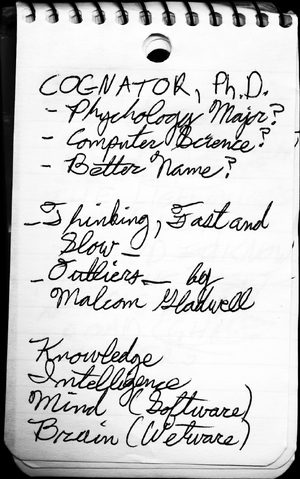 COGNATOR, Ph.D.
- Phychology Major?
- Computer Science?
- Better Name?
_Thinking, Fast and
Slow_
_Outliers_ by
Malcom Gladwell
Knowledge
Intelligence
Mind (Software)
Brain (Wetware)